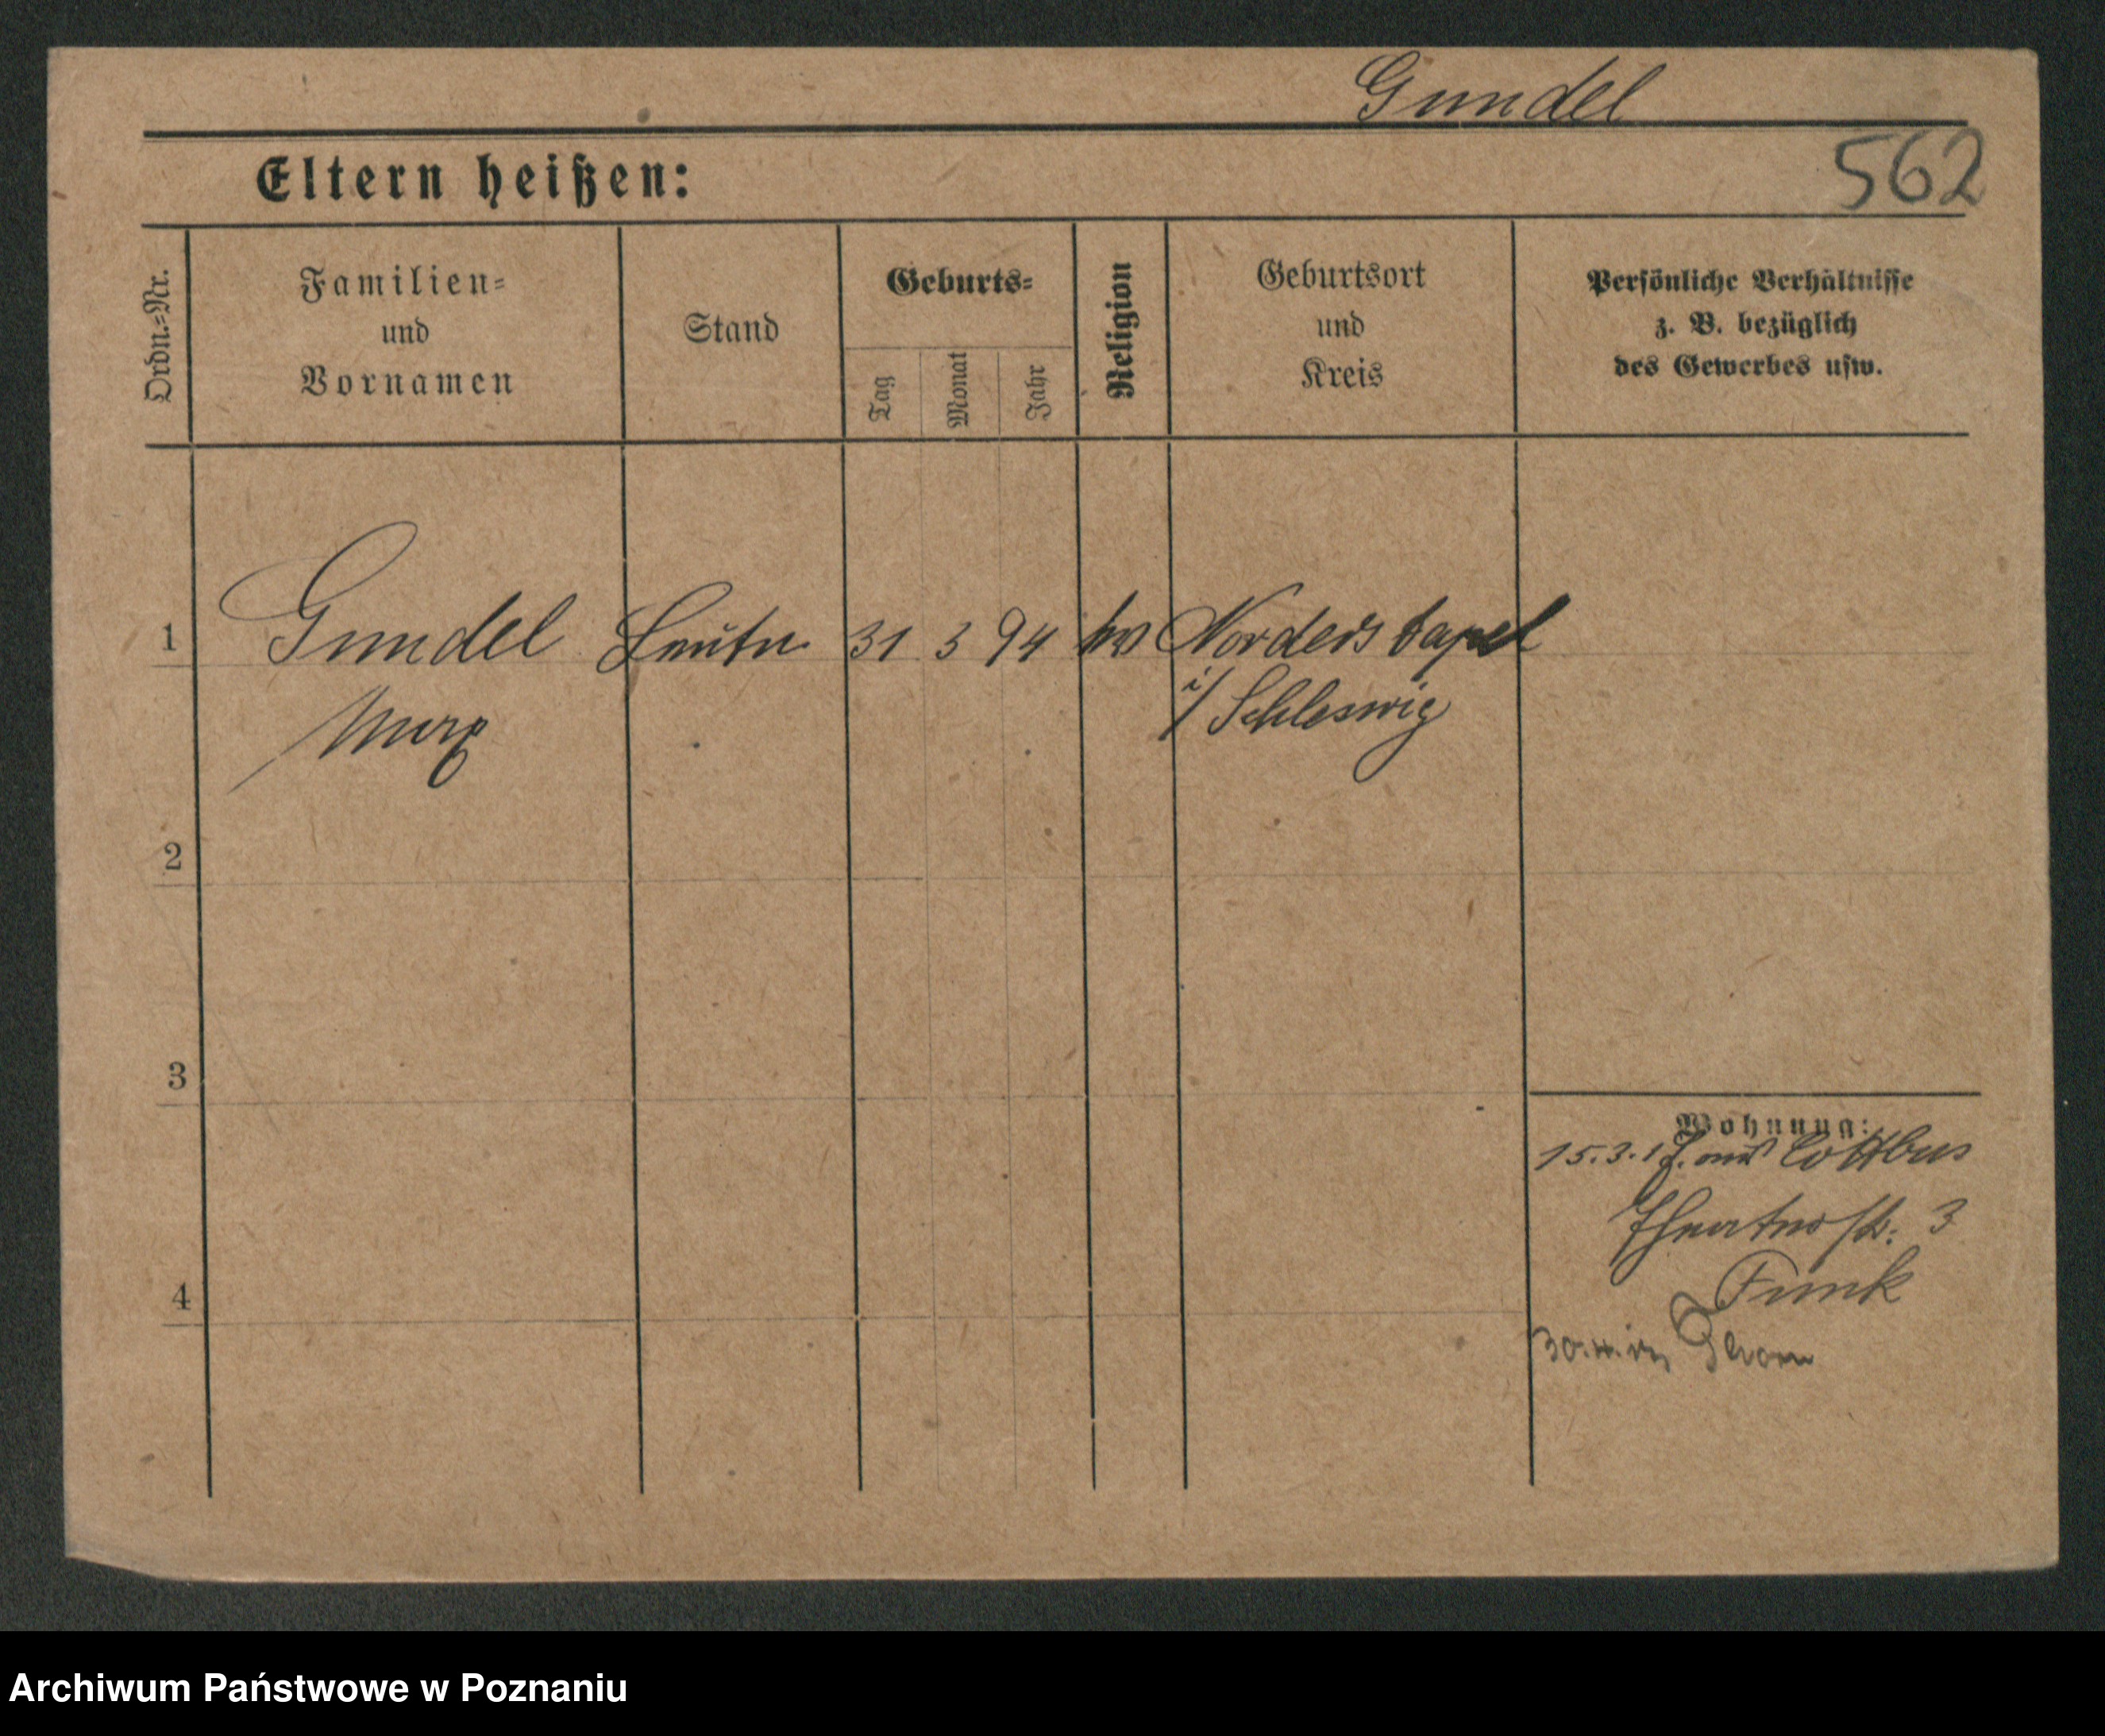 Gundel
562
Eltern heißen:
Ordn.=Nr.
Familien=
und
Vornamen
Stand
Geburts=
Tag
Monat
Jahr
Religion
Geburtsort
und
Kreis
Persönliche Verhältnisse
z. B. bezüglich
des Gewerbes usw.
1 Gundel 31 3 94 Norderstapel
Marx i/ Schleswig
2
3
Wohnung:
15.3.17. aus Cottbus
3
Funk
4
Archiwum Państwowe w Poznaniu